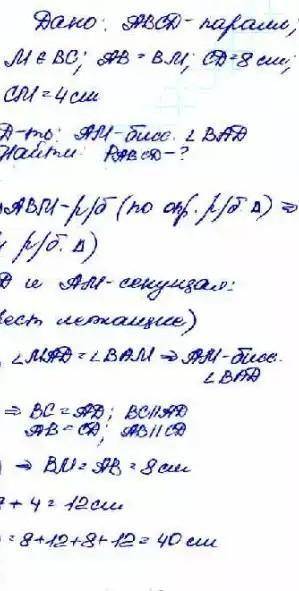 Дано: ABCD-парал;
M ∈ BC; AB = BM; CD = 8 см;
CM = 4 см
Д-ть: AM-бисс. ∠BAD
Найти: PABCD-?
ABM-р/б (по опр. р/б. Δ) ⇒
р/б. Δ)
D и AM-секущая:
(вест лежащие)
∠MAD = ∠BAM ⇒ AM-бисс.
∠BAD
⇒ BC = AD; BC||AD
AB = CD; AB||CD
⇒ BM = AB = 8 см
+ 4 = 12 см
= 8+12+8+12 = 40 см